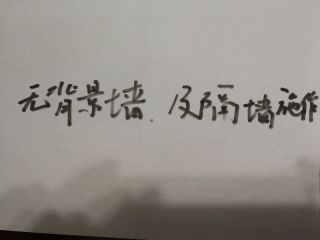 无背景墙.及隔墙施作